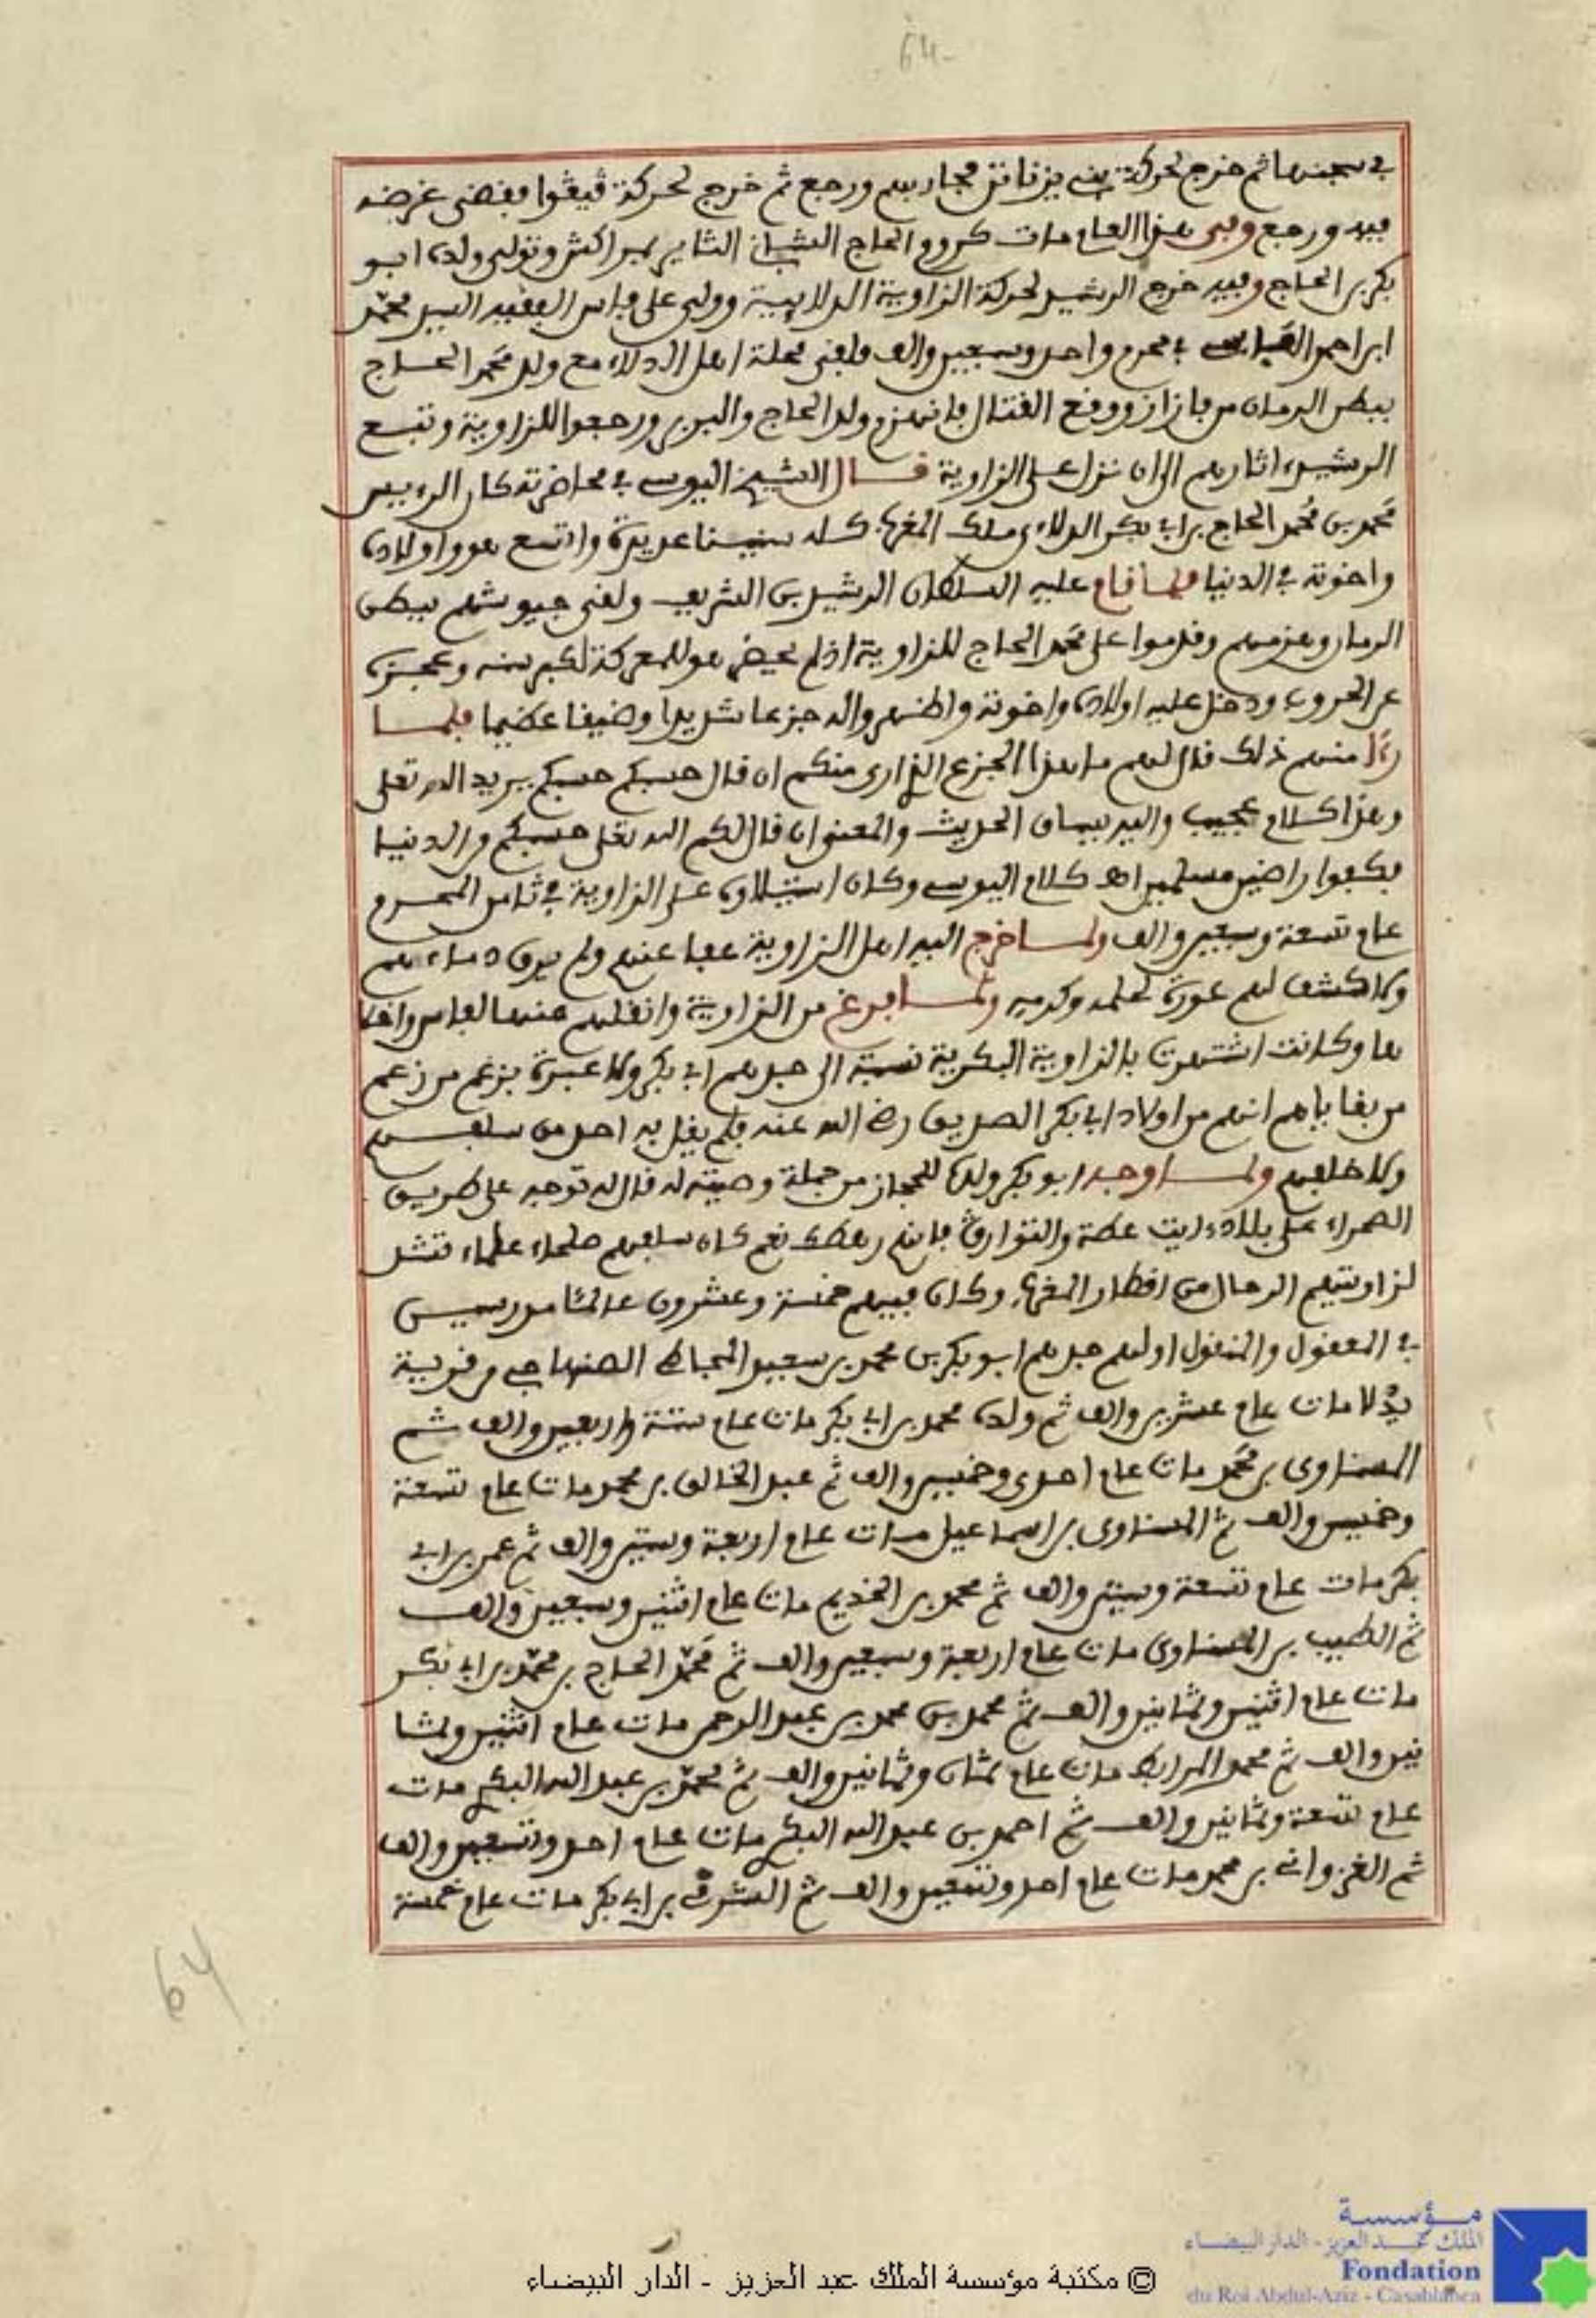 64
في سجنها ثم خرج لحركة بني يزناتن فحاربهم ورجع ثم خرج لحركة فيڨوا فقضى غرضه
فيه ورجع وفي هذا العام مات كروم الحاج الشباني الثاير بمراكش وتولى ولده ابو
بكر بن الحاج وفيه خرج الرشيد لحركة الزاوية الدلايية وولى على فاس الفقيه السيد محمد
ابن احمد الفاسي في محرم واحد وسبعين والف فلقى محلة اهل الدلاء مع ولد محمد الحاج
ببطن الرمان من فازاز ووقع القتال فانهزم ولد الحاج والبربر ورجعوا للزاوية وتبع
الرشيد اثارهم الى ان نزل على الزاوية قال الشيخ اليوسي في محاضرته كان الرءيس
محمد بن محمد الحاج بن ابي بكر الدلاءي ملك المغرب كله سنينا عديدة واتسع هو واولاده
واخوته في الدنيا فلما قام عليه السلطان الرشيد بن الشريف ولقى جيوشهم ببطن
الرمان وهزمهم وقدموا على محمد الحاج للزاوية اذ لم يحضر هو للمعركة لكبر سنه وعجزه
عن الحروب ودخل عليه اولاده واخوته واظهروا له جزعا شديدا وضيقا عظيما فلما
رءا منهم ذلك قال لهم ما هذا الجزع الذي ارى منكم ان قال حسبكم حسبكم يريد الله تعلى
وهذا كلام عجيب واليه يساق الحديث والمعنى ان قال لكم الله تعلى حسبكم من الدنيا
فكفوا راضين مسلمين اهـ كلام اليوسي وكان استيلاؤه على الزاوية في ثامن المحرم
عام تسعة وسبعين والف ولما خرج اليه اهل الزاوية عفا عنهم ولم يرق دماءهم
ولا كشف لهم عورة لحلمه وكرمه ولما فرغ من الزاوية وانقلهم منها لفاس واخلا
ها وكانت اشتهرت بالزاوية البكرية نسبة الى جدهم ابي بكر ولا عبرة بزعم من زعم
من بقاياهم انهم من اولاد ابي بكر الصديق رضي الله عنه فلم يقل به احد من سلفهم
ولا خلفهم ولما وجه ابو بكر ولده للحجاز من جملة وصيته له قال له توجه على طريق
الصحراء على بلاد ءايت عطة والتوارڨ فانهم رهطك نعم كان سلفهم صلحاء علماء تشد
لزاويتهم الرحال من اقطار المغرب وكان فيهم خمسة وعشرون عالما مدرسين
في المعقول والمنقول اولهم جدهم ابو بكر بن محمد بن سعيد المجاطي الصنهاجي من قرية
بدلا مات عام عشرين والف ثم ولده محمد بن ابي بكر مات عام ستة واربعين والف ثم
المسناوي بن محمد مات عام احدى وخمسين والف ثم عبد الخالق بن محمد مات عام تسعة
وخمسين والف ثم المسناوي بن اسماعيل مات عام اربعة وستين والف ثم عمر بن ابي
بكر مات عام تسعة وستين والف ثم محمد بن الخديم مات عام اثنين وسبعين والف
ثم الطيب بن المسناوي مات عام اربعة وسبعين والف ثم محمد الحاج بن محمد بن ابي بكر
مات عام اثنين وثمانين والف ثم محمد بن محمد بن عبد الرحمن مات عام اثنين وثما
نين والف ثم محمد المرابط مات عام ثمان وثمانين والف ثم محمد بن عبد الله البكري مات
عام تسعة وثمانين والف ثم احمد بن عبد الله البكري مات عام احد وتسعين والف
ثم الغزواني بن محمد مات عام احد وتسعين والف ثم الشرڨي بن ابي بكر مات عام خمسة
64
© مكتبة مؤسسة الملك عبد العزيز - الدار البيضاء
مؤسسة
الملك عبد العزيز - الدار البيضاء
Fondation
du Roi Abdul-Aziz - Casablanca